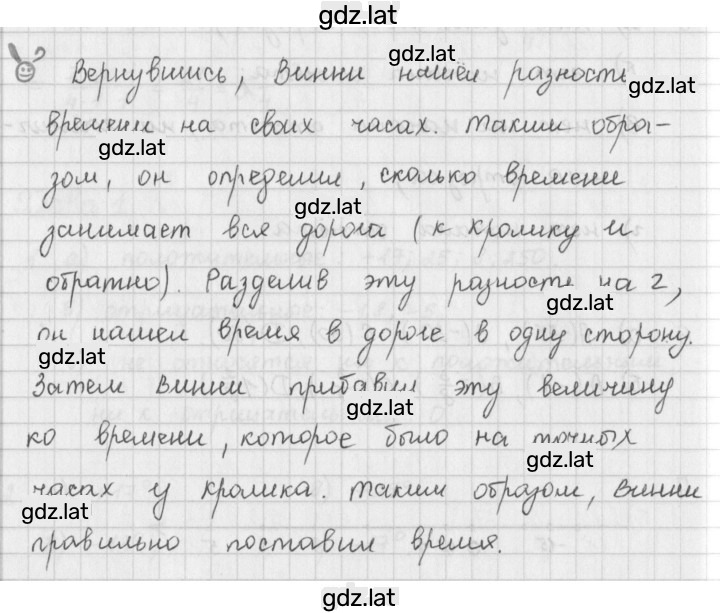 gdz.lat
Вернувшись, Винни нашёл разность
gdz.lat
gdz.lat
времени на своих часах. Таким обра-
gdz.lat
зом, он определил, сколько времени
gdz.lat
занимает вся дорога (к Кролику и
обратно). Разделив эту разность на 2,
gdz.lat
он нашел время в дороге в одну сторону.
gdz.lat
Затем Винни прибавил эту величину
gdz.lat
ко времени, которое было на точных
gdz.lat
часах у Кролика. Таким образом, Винни
gdz.lat
правильно поставил время.
gdz.lat